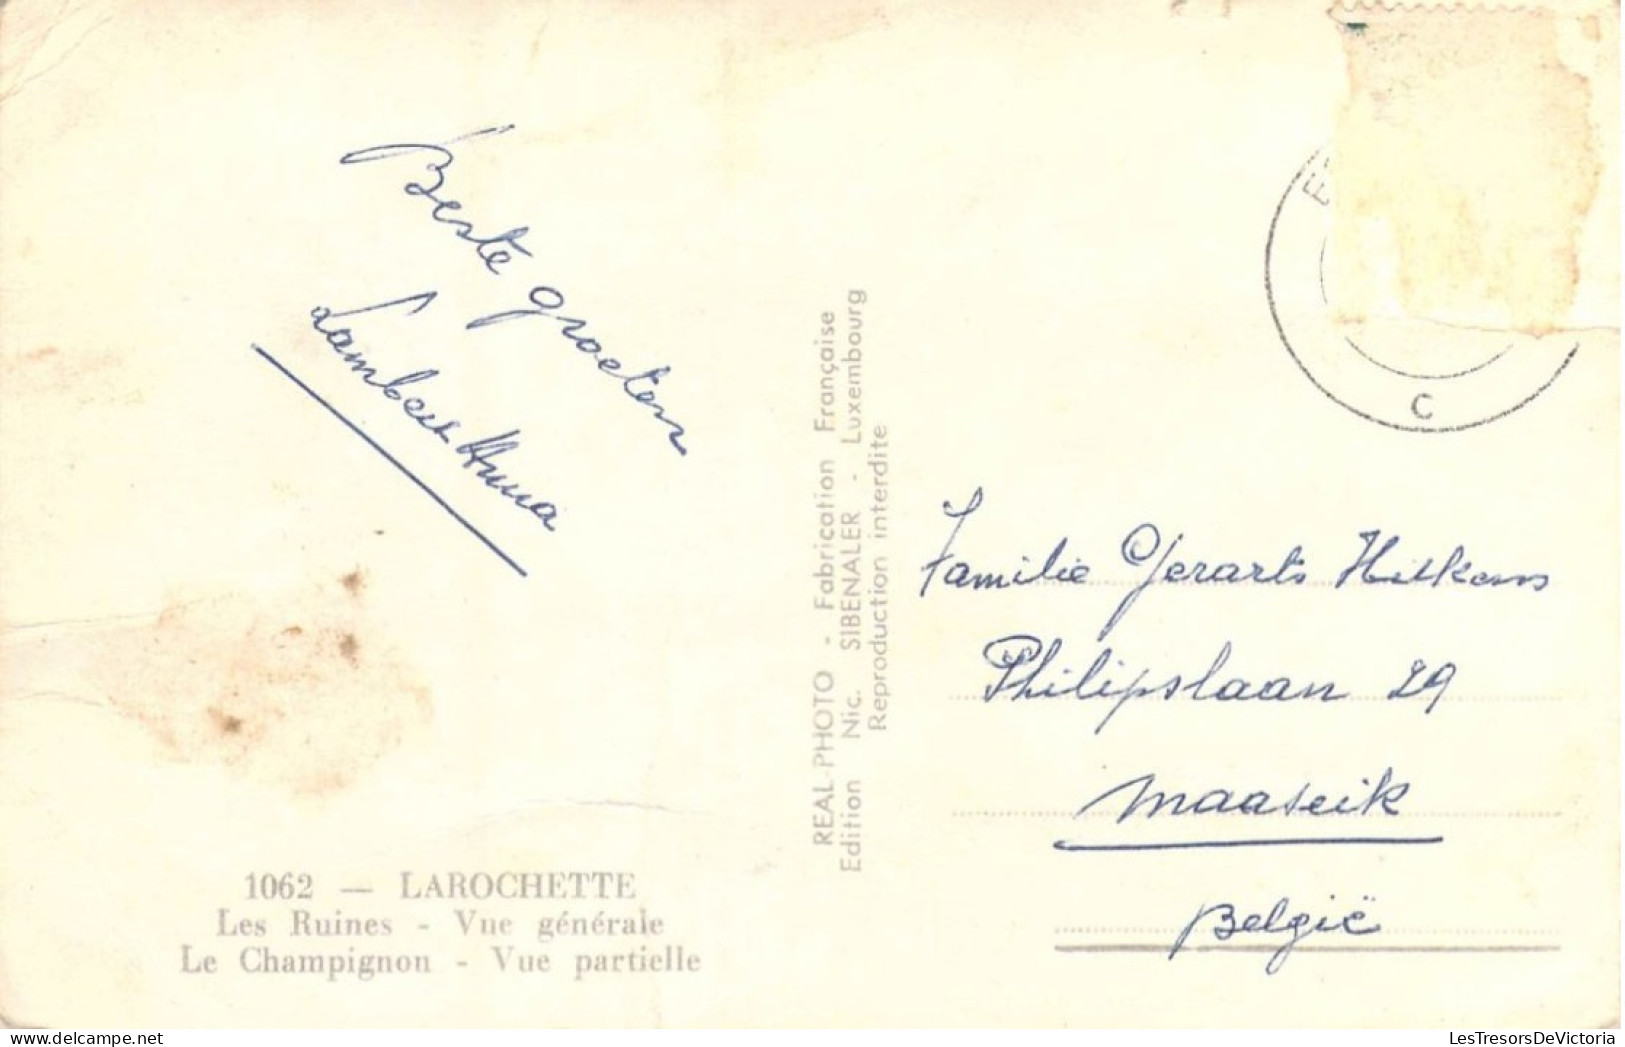 Beste groeten
Lambert Anna
1062 — LAROCHETTE
Les Ruines - Vue générale
Le Champignon - Vue partielle
REAL-PHOTO - Fabrication Française
Edition Nic. SIBENALER - Luxembourg
Reproduction interdite
E
C
Familie Gerarts
Philipslaan 29
Maaseik
België
LesTresorsDeVictoria